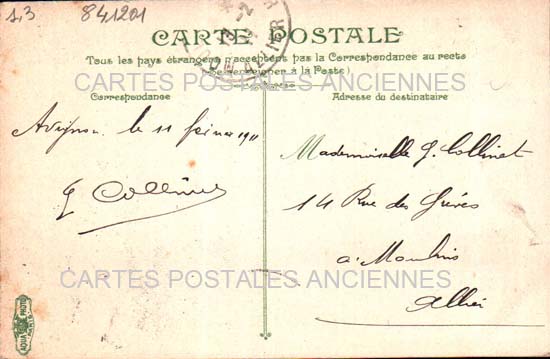 1,3 841201
CARTE POSTALE
Tous les pays étrangers n'acceptent pas la Correspondance au recto
(Se renseigner à la Poste)
CARTES POSTALES ANCIENNES
Correspondance
Adresse du destinataire
Avignon, le 11 février 1911
G Collinet
Mademoiselle G. Collinet
14 Rue des Grêves
à Moulins
Allier
CARTES POSTALES ANCIENNES
AQUA PHOTO
PARIS